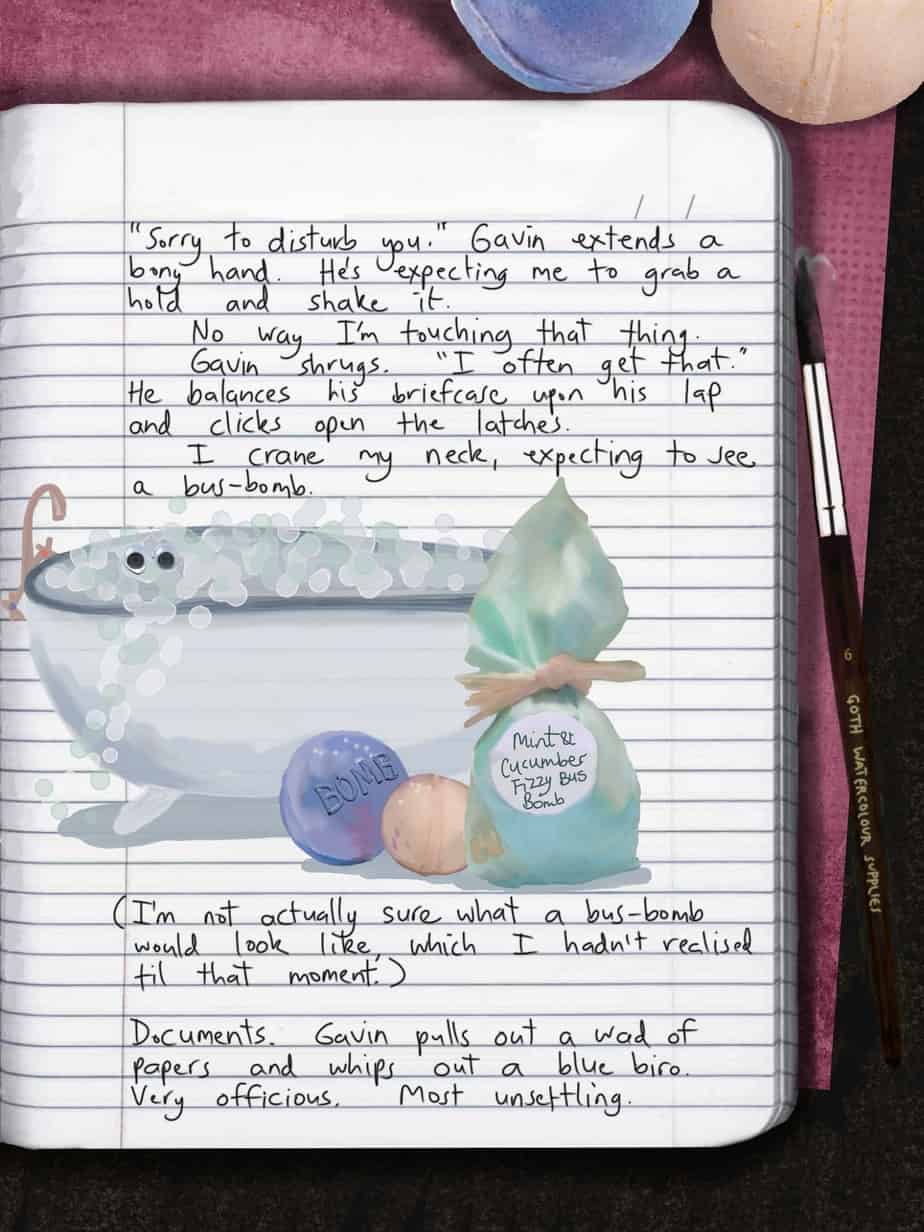 "Sorry to disturb you." Gavin extends a
bony hand. He's expecting me to grab a
hold and shake it.
No way I'm touching that thing.
Gavin shrugs. "I often get that."
He balances his briefcase upon his lap
and clicks open the latches.
I crane my neck, expecting to see
a bus-bomb.
BOMB
Mint &
Cucumber
Fizzy Bus
Bomb
6 GOTH WATERCOLOUR SUPPLIES
(I'm not actually sure what a bus-bomb
would look like, which I hadn't realised
til that moment.)
Documents. Gavin pulls out a wad of
papers and whips out a blue biro.
Very officious. Most unsettling.